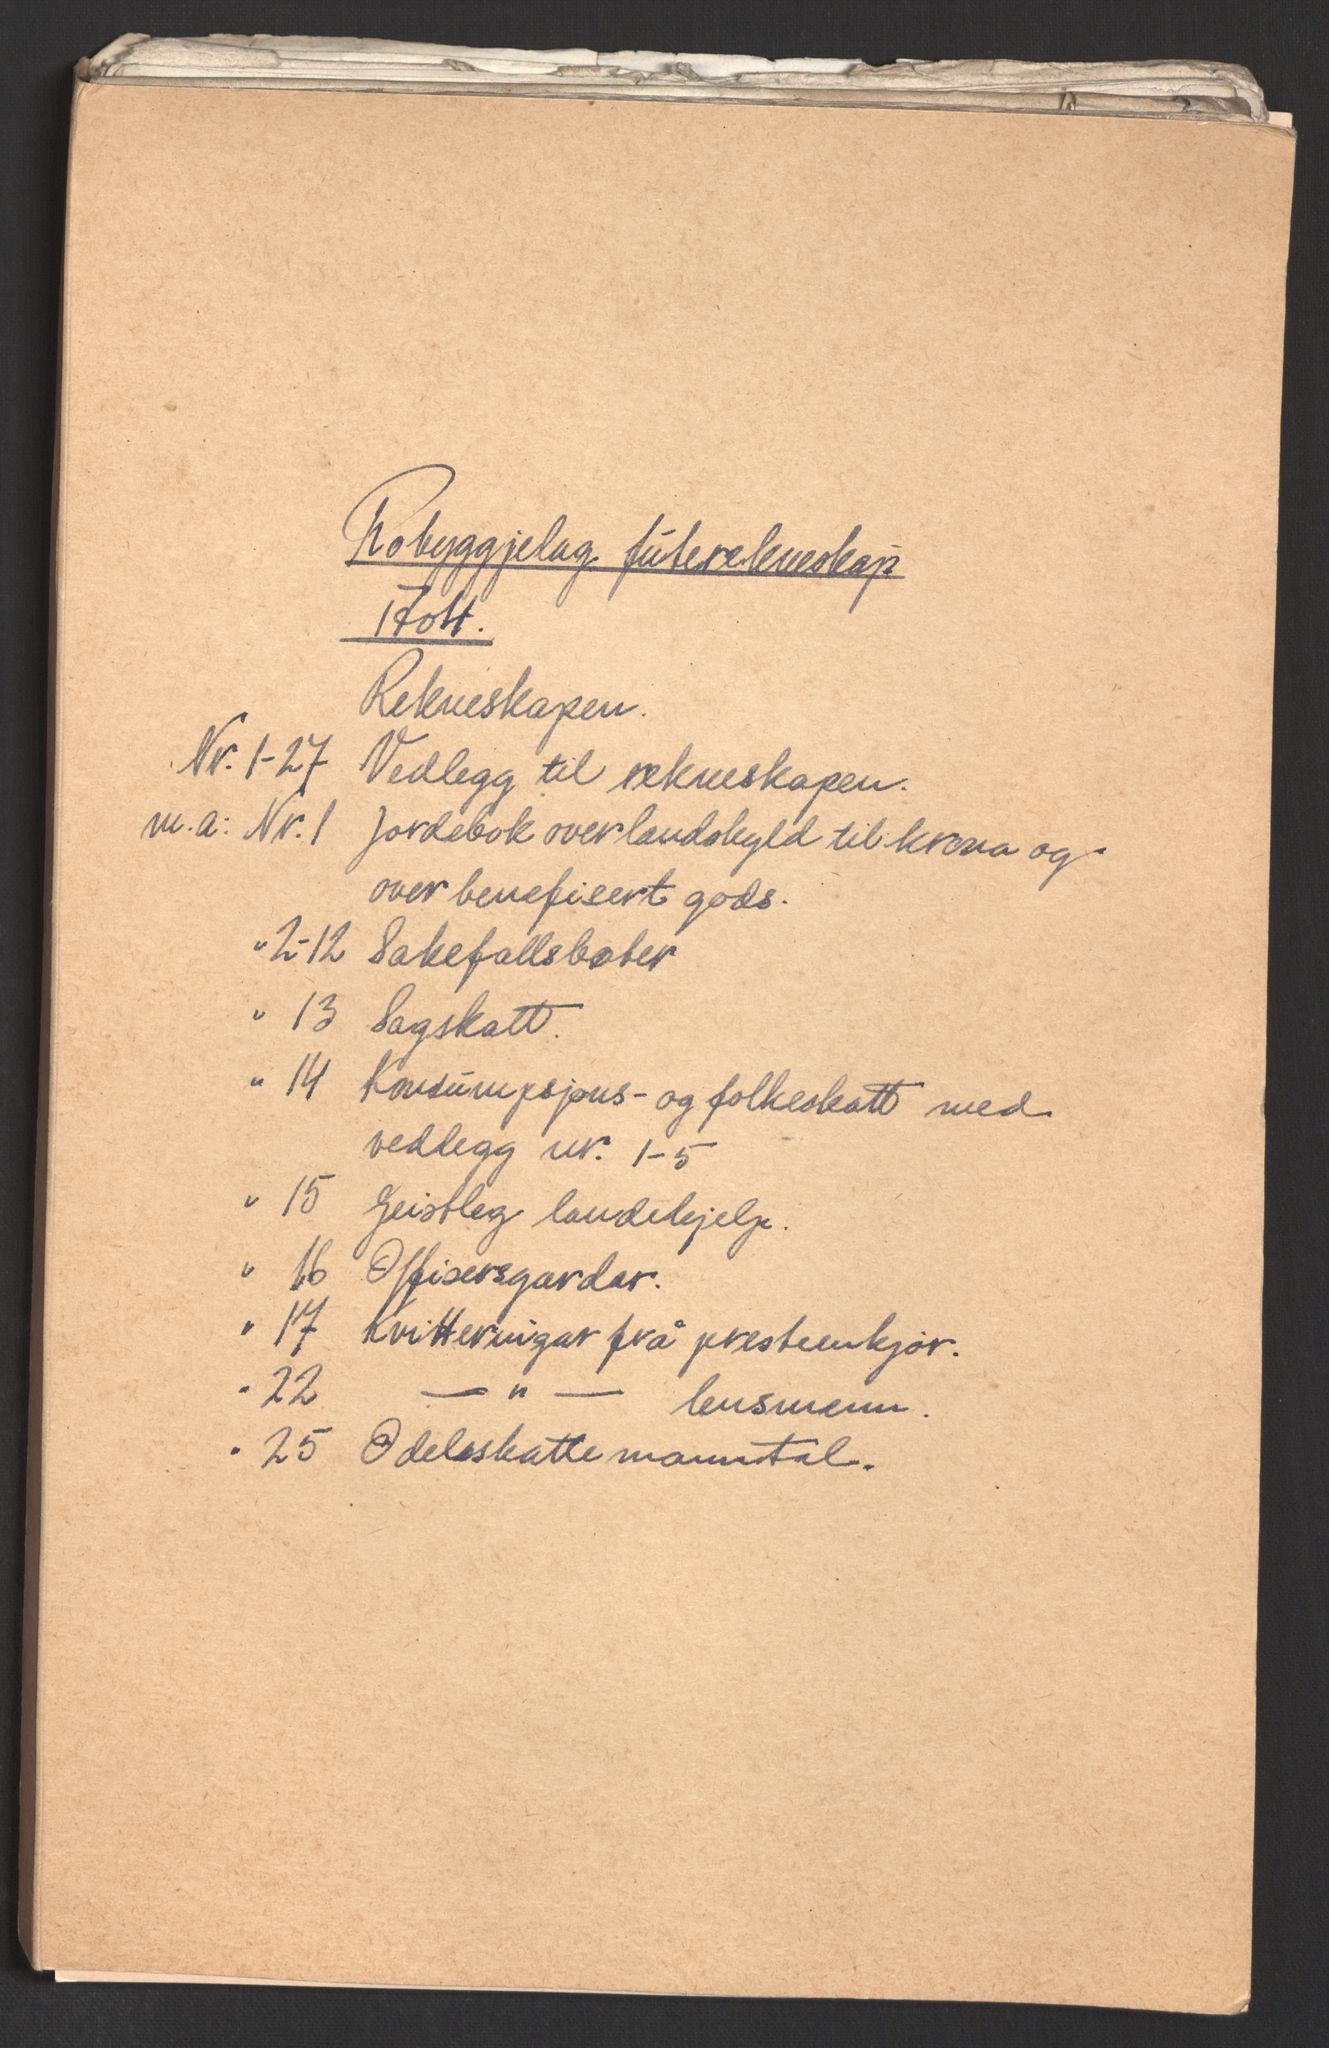 Robyggjelag futerekneskap
Rekneskapen.
Nr. 1-27 Vedlegg til rekneskapen.
m.a: Nr. 1 Jordebok over landskyld til krona og
over benefisert gods.
" 2-12 Sakefallsbøter
" 13 Sagskatt.
" 14 Konsumpsjons- og folkeskatt med
vedlegg nr. 1-5
" 15 Geistleg landehjelp.
" 16 Offisersgardar.
" 17 Kvitteringar frå presteenkjor.
" 22 — " — lensmenn.
" 25 Odelsskattemanntal.